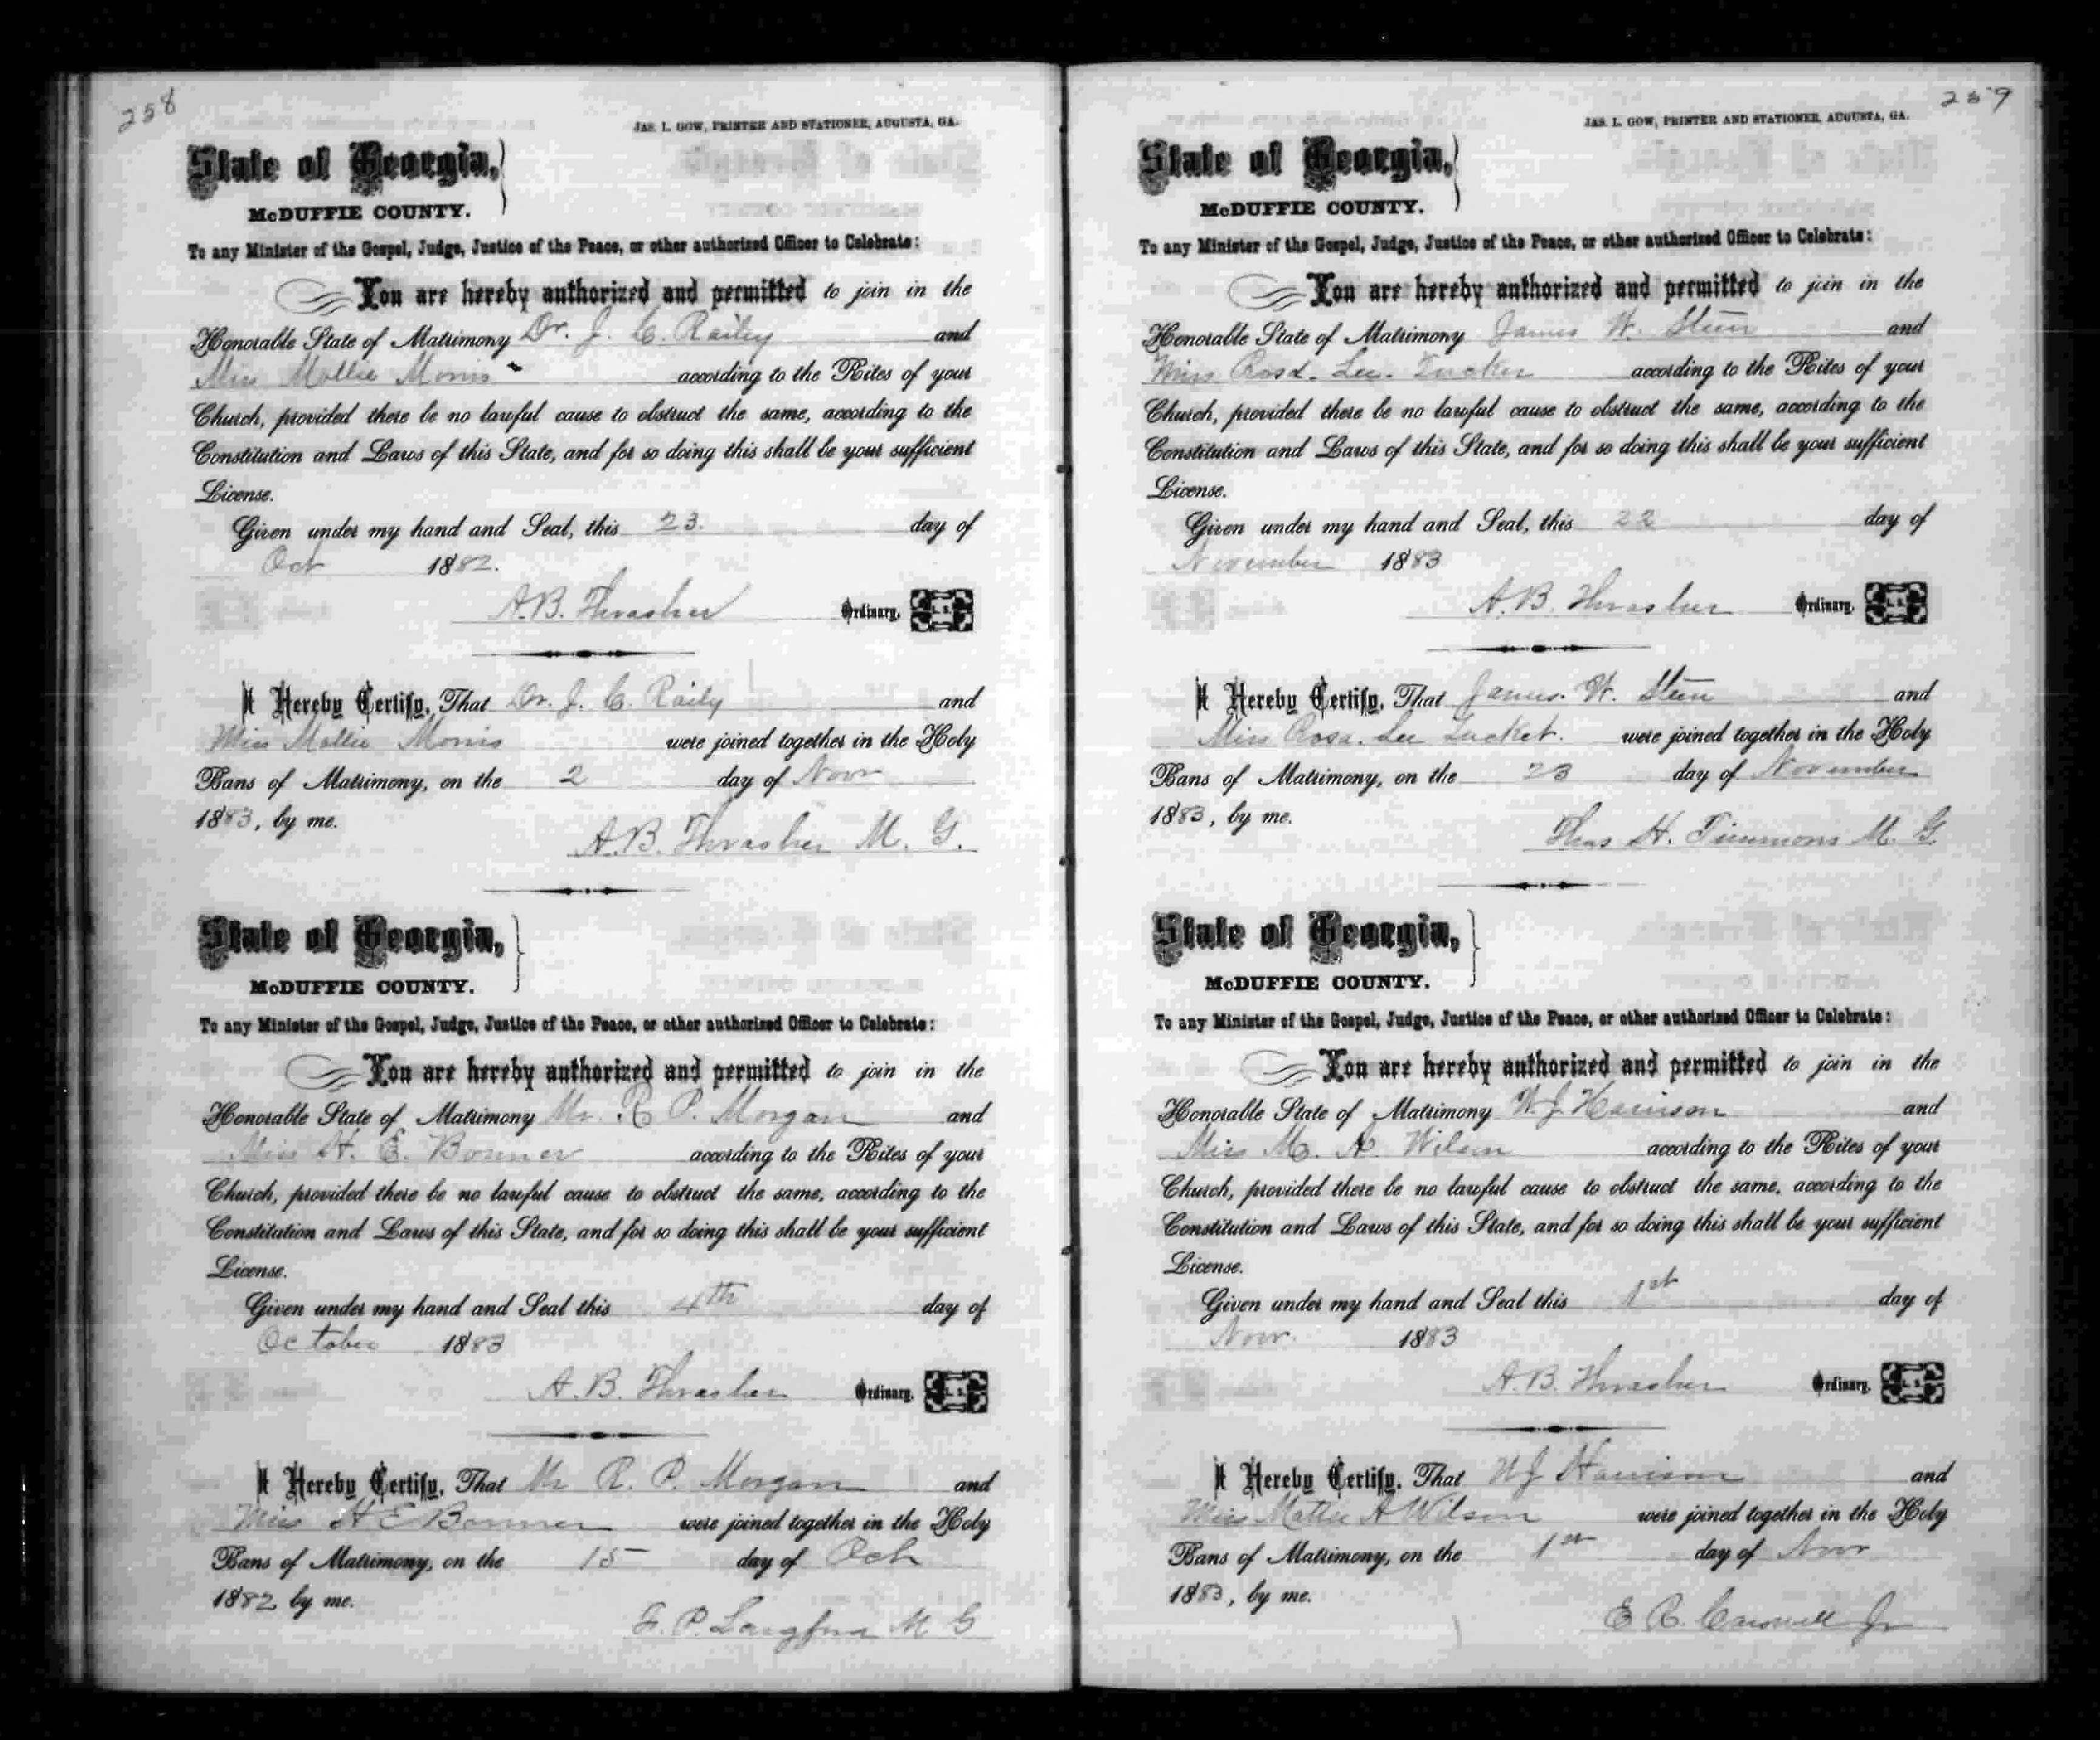 258
JAS. L. GOW, PRINTER AND STATIONER, AUGUSTA, GA.
State of Georgia,
McDUFFIE COUNTY.
To any Minister of the Gospel, Judge, Justice of the Peace, or other authorized Officer to Celebrate:
You are hereby authorized and permitted to join in the
Honorable State of Matrimony Dr. J. C. Railey and
Miss Mollie Morris according to the Rites of your
Church, provided there be no lawful cause to obstruct the same, according to the
Constitution and Laws of this State, and for so doing this shall be your sufficient
License.
Given under my hand and Seal, this 23. day of
Oct 1882.
A.B. Thrasher Ordinary. L. S.
I Hereby Certify, That Dr. J. C. Raily and
Miss Mollie Morris were joined together in the Holy
Bans of Matrimony, on the 2 day of Novr
1883, by me.
A.B. Thrasher M. G.
State of Georgia,
McDUFFIE COUNTY.
To any Minister of the Gospel, Judge, Justice of the Peace, or other authorized Officer to Celebrate:
You are hereby authorized and permitted to join in the
Honorable State of Matrimony Mr. R. P. Morgan and
Miss H. E. Bonner according to the Rites of your
Church, provided there be no lawful cause to obstruct the same, according to the
Constitution and Laws of this State, and for so doing this shall be your sufficient
License.
Given under my hand and Seal this 4th day of
October 1883
A.B. Thrasher Ordinary. L. S.
I Hereby Certify, That Mr R. P. Morgan and
Miss H E Bonner were joined together in the Holy
Bans of Matrimony, on the 15 day of Oct
1882 by me.
F. P. Langford M G
259
JAS. L. GOW, PRINTER AND STATIONER, AUGUSTA, GA.
State of Georgia,
McDUFFIE COUNTY.
To any Minister of the Gospel, Judge, Justice of the Peace, or other authorized Officer to Celebrate:
You are hereby authorized and permitted to join in the
Honorable State of Matrimony James W. Steen and
Miss Rosa. Lee. Tucker according to the Rites of your
Church, provided there be no lawful cause to obstruct the same, according to the
Constitution and Laws of this State, and for so doing this shall be your sufficient
License.
Given under my hand and Seal, this 22 day of
November 1883
A.B. Thrasher Ordinary. L. S.
I Hereby Certify, That James. W. Steen and
Miss Rosa. Lee Tucket. were joined together in the Holy
Bans of Matrimony, on the 23 day of November
1883, by me.
Thos H. Timmons M. G.
State of Georgia,
McDUFFIE COUNTY.
To any Minister of the Gospel, Judge, Justice of the Peace, or other authorized Officer to Celebrate:
You are hereby authorized and permitted to join in the
Honorable State of Matrimony W. J. Harrison and
Miss M. A. Wilson according to the Rites of your
Church, provided there be no lawful cause to obstruct the same, according to the
Constitution and Laws of this State, and for so doing this shall be your sufficient
License.
Given under my hand and Seal this 1st day of
Novr. 1883
A.B. Thrasher Ordinary. L. S.
I Hereby Certify, That W J Harrison and
Miss Mattie A Wilson were joined together in the Holy
Bans of Matrimony, on the 1st day of Novr
1883, by me.
E R. Carswell Jr